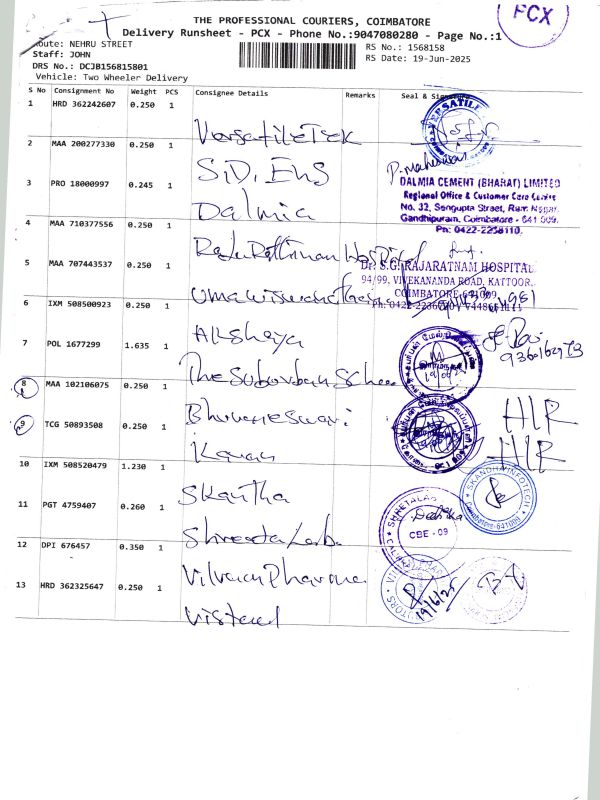 PCX
THE PROFESSIONAL COURIERS, COIMBATORE
Delivery Runsheet - PCX - Phone No.:9047080280 - Page No.:1
Route: NEHRU STREET
RS No.: 1568158
Staff: JOHN
RS Date: 19-Jun-2025
DRS No.: DCJB156815801
Vehicle: Two Wheeler Delivery
S No Consignment No Weight PCS Consignee Details Remarks Seal & Signature
1 HRD 362242607 0.250 1
VersatileTek
2 MAA 200277330 0.250 1
S.D. ENS
P. Maheswari
3 PRO 18000997 0.245 1
Dalmia
DALMIA CEMENT (BHARAT) LIMITED
Regional Office & Customer Care Centre
No. 32, Sengupta Street, Ram Nagar,
Gandhipuram, Coimbatore - 641 009.
Ph: 0422-2238110.
4 MAA 710377556 0.250 1
Hospital
5 MAA 707443537 0.250 1
Dr. S.G. RAJARATNAM HOSPITAL
94/99, VIVEKANANDA ROAD, KATTOOR,
COIMBATORE-641009
6 IXM 508500923 0.250 1
Akshaya
7 POL 1677299 1.635 1
The Suburban School
8 MAA 102106075 0.250 1
Bhuvaneswari
HIR
9 TCG 50893508 0.250 1
Kavan
HIR
10 IXM 508520479 1.230 1
Skantha
SKANDHA INFOTECH
Coimbatore-641009
11 PGT 4759407 0.260 1
SHREETALAB
CBE - 09
12 DPI 676457 0.350 1
Vilvam Pharma
19/6/25
13 HRD 362325647 0.250 1